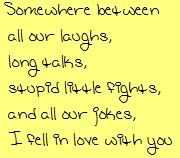 Somewhere between
all our laughs,
long talks,
stupid little fights,
and all our jokes,
I fell in love with you